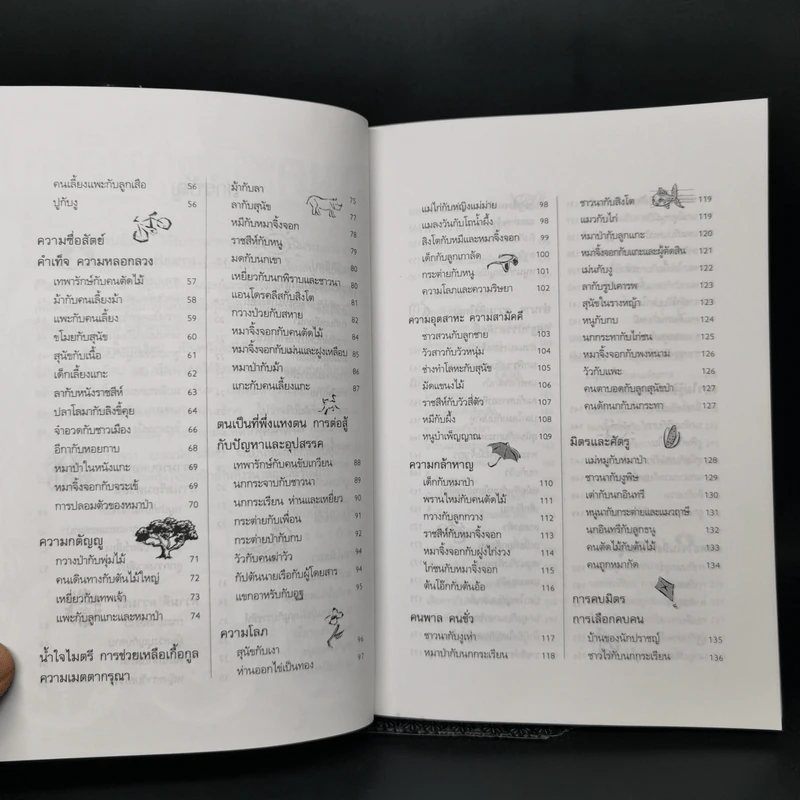 คนเลี้ยงแพะกับลูกเสือ 56
ปูกับงู 56
ความซื่อสัตย์
คำเท็จ ความหลอกลวง
เทพารักษ์กับคนตัดไม้ 57
ม้ากับคนเลี้ยงม้า 58
แพะกับคนเลี้ยง 59
ขโมยกับสุนัข 60
สุนัขกับเนื้อ 61
เด็กเลี้ยงแกะ 62
ลากับหนังราชสีห์ 63
ปลาโลมากับลิงขี้คุย 64
จำอวดกับชาวเมือง 66
อีกากับหอยกาบ 68
หมาป่าในหนังแกะ 69
หมาจิ้งจอกกับจระเข้ 69
การปลอมตัวของหมาป่า 70
ความกตัญญู
กวางป่ากับพุ่มไม้ 71
คนเดินทางกับต้นไม้ใหญ่ 72
เหยี่ยวกับเทพเจ้า 73
แพะกับลูกแกะและหมาป่า 74
น้ำใจไมตรี การช่วยเหลือเกื้อกูล
ความเมตตากรุณา
ม้ากับลา
ลากับสุนัข 75
หมีกับหมาจิ้งจอก
ราชสีห์กับหนู
มดกับนกเขา
เหยี่ยวกับนกพิราบและชาวนา
แอนโดรคลีสกับสิงโต
กวางป่วยกับสหาย
หมาจิ้งจอกกับคนตัดไม้
หมาจิ้งจอกกับเม่นและฝูงเหลือบ
หมาป่ากับม้า
แกะกับคนเลี้ยงแกะ 87
ตนเป็นที่พึ่งแห่งตน การต่อสู้
กับปัญหาและอุปสรรค
เทพารักษ์กับคนขับเกวียน 88
นกกระจาบกับชาวนา
นกกระเรียน ห่านและเหยี่ยว
กระต่ายกับเพื่อน
กระต่ายป่ากับกบ
วัวกับคนฆ่าวัว
กัปตันนายเรือกับผู้โดยสาร
แขกอาหรับกับอูฐ
ความโลภ
สุนัขกับเงา 96
ห่านออกไข่เป็นทอง 97
แม่ไก่กับหญิงแม่ม่าย 98
แมลงวันกับโถน้ำผึ้ง 98
สิงโตกับหมีและหมาจิ้งจอก 99
เด็กกับลูกเกาลัด 100
กระต่ายกับหนู 101
ความโลภและความริษยา 102
ความอุตสาหะ ความสามัคคี
ชาวสวนกับลูกชาย 103
วัวสาวกับวัวหนุ่ม 104
ช่างทำโลหะกับสุนัข 105
มัดแขนงไม้ 106
ราชสีห์กับวัวสี่ตัว 107
หมีกับผึ้ง 108
หนูบำเพ็ญญาณ 109
ความกล้าหาญ
เด็กกับหมาป่า 110
พรานใหม่กับคนตัดไม้ 111
กวางกับลูกกวาง 112
ราชสีห์กับหมาจิ้งจอก 113
หมาจิ้งจอกกับฝูงไก่งวง 114
ไก่ชนกับหมาจิ้งจอก 115
ต้นโอ๊กกับต้นอ้อ 116
คนพาล คนชั่ว
ชาวนากับงูเห่า 117
หมาป่ากับนกกระเรียน 118
ชาวนากับสิงโต 119
แมวกับไก่ 119
หมาป่ากับลูกแกะ 120
หมาจิ้งจอกกับแกะและผู้ตัดสิน 121
เม่นกับงู 122
ลากับรูปเคารพ 123
สุนัขในรางหญ้า 123
หนูกับกบ 124
นกกระทากับไก่ชน 125
หมาจิ้งจอกกับพงหนาม 126
วัวกับแพะ 126
คนตาบอดกับลูกสุนัขป่า 127
คนดักนกกับนกกระทา 127
มิตรและศัตรู
แม่หมูกับหมาป่า 128
ชาวนากับงูพิษ 129
เต่ากับนกอินทรี 130
หนูนากับกระต่ายและแมวฤาษี 131
นกอินทรีกับลูกธนู 132
คนตัดไม้กับต้นไม้ 133
คนถูกหมากัด 134
การคบมิตร
การเลือกคบคน
บ้านของนักปราชญ์ 135
ชาวไร่กับนกกระเรียน 136